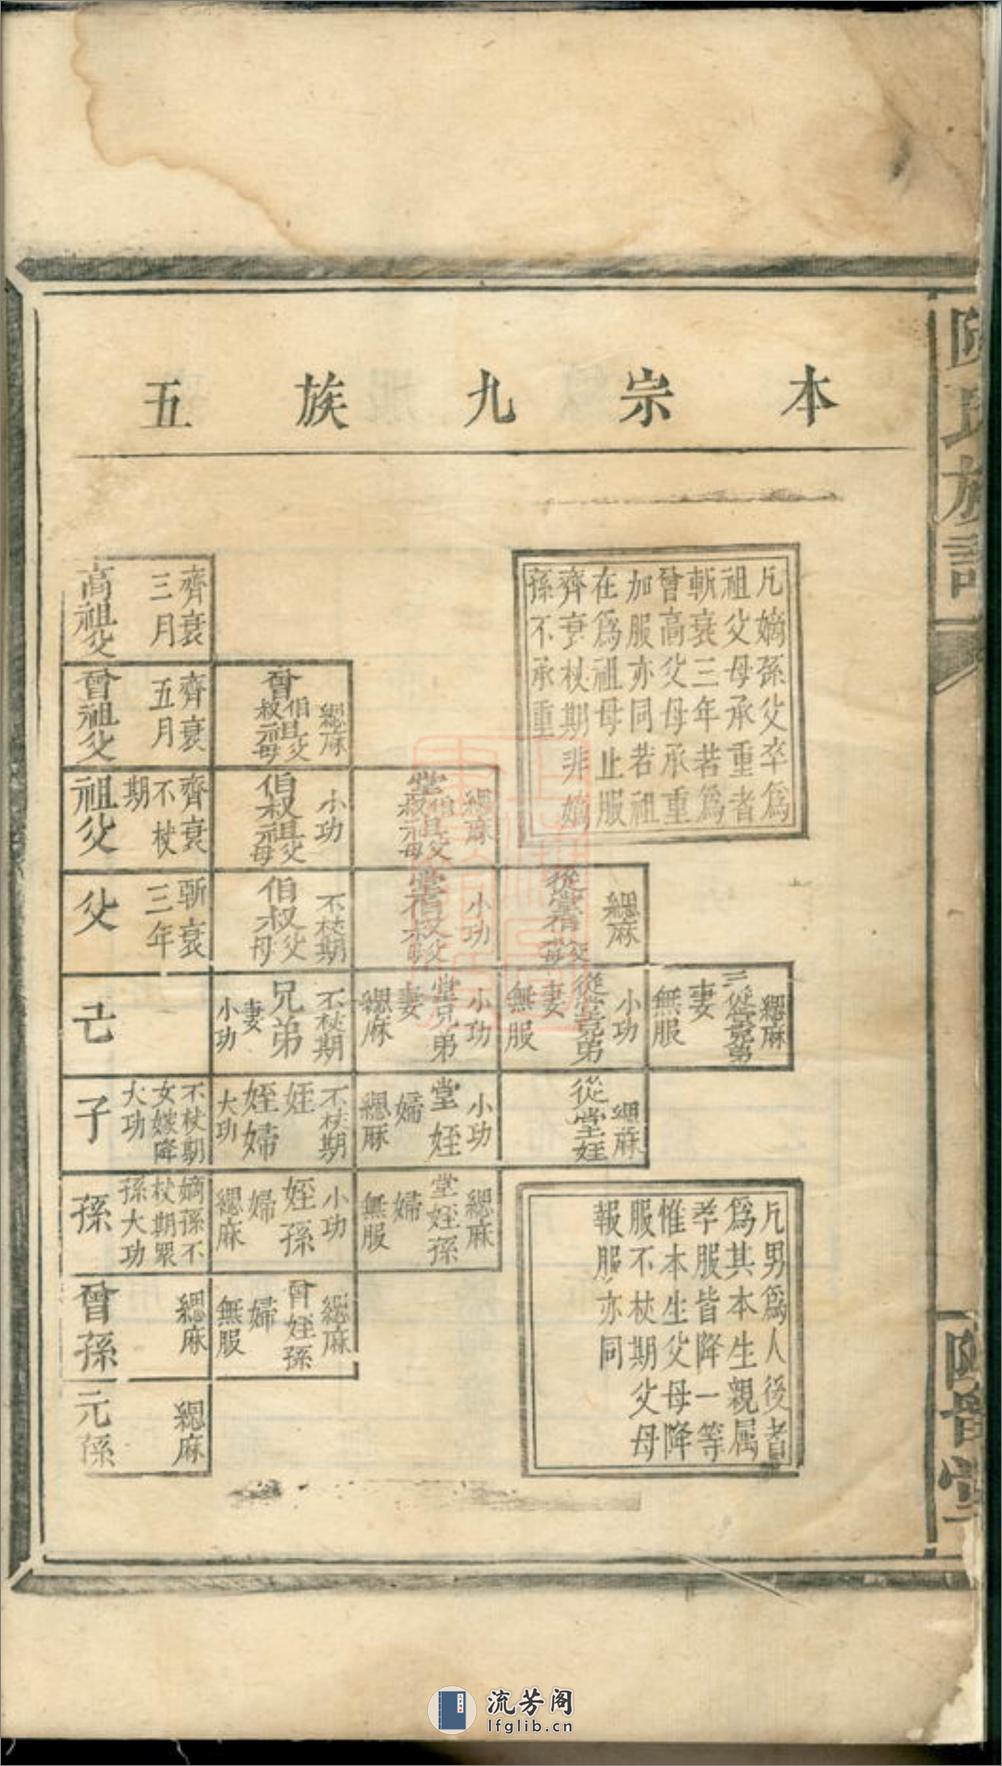 本宗九族五
凡嫡孫父卒爲
祖父母承重者
斬衰三年若爲
曾高父母承重
加服亦同若祖
在爲祖母止服
齊衰杖期非嫡
孫不承重
凡男爲人後者
爲其本生親属
孝服皆降一等
惟本生父母降
服不杖期父母
報服亦同
高祖父 齊衰三月
曾祖父 齊衰五月
曾伯叔祖父母 緦麻
祖父 齊衰不杖期
伯叔祖父母 小功
堂伯叔祖父母 緦麻
父 斬衰三年
伯叔父母 不杖期
堂伯叔父母 小功
從堂伯叔父母 緦麻
己
兄弟 不杖期 妻 小功
堂兄弟 小功 妻 緦麻
從堂兄弟 小功 妻 無服
三從堂兄弟 緦麻 妻 無服
子 不杖期女嫁降大功
姪 不杖期 姪婦 大功
堂姪 小功 婦 緦麻
從堂姪 緦麻
孫 嫡孫不杖期眾孫大功
姪孫 小功 婦 緦麻
堂姪孫 緦麻 婦 無服
曾孫 緦麻
曾姪孫 緦麻 婦 無服
元孫 緦麻
氏族譜
堂
流芳阁
lfglib.cn